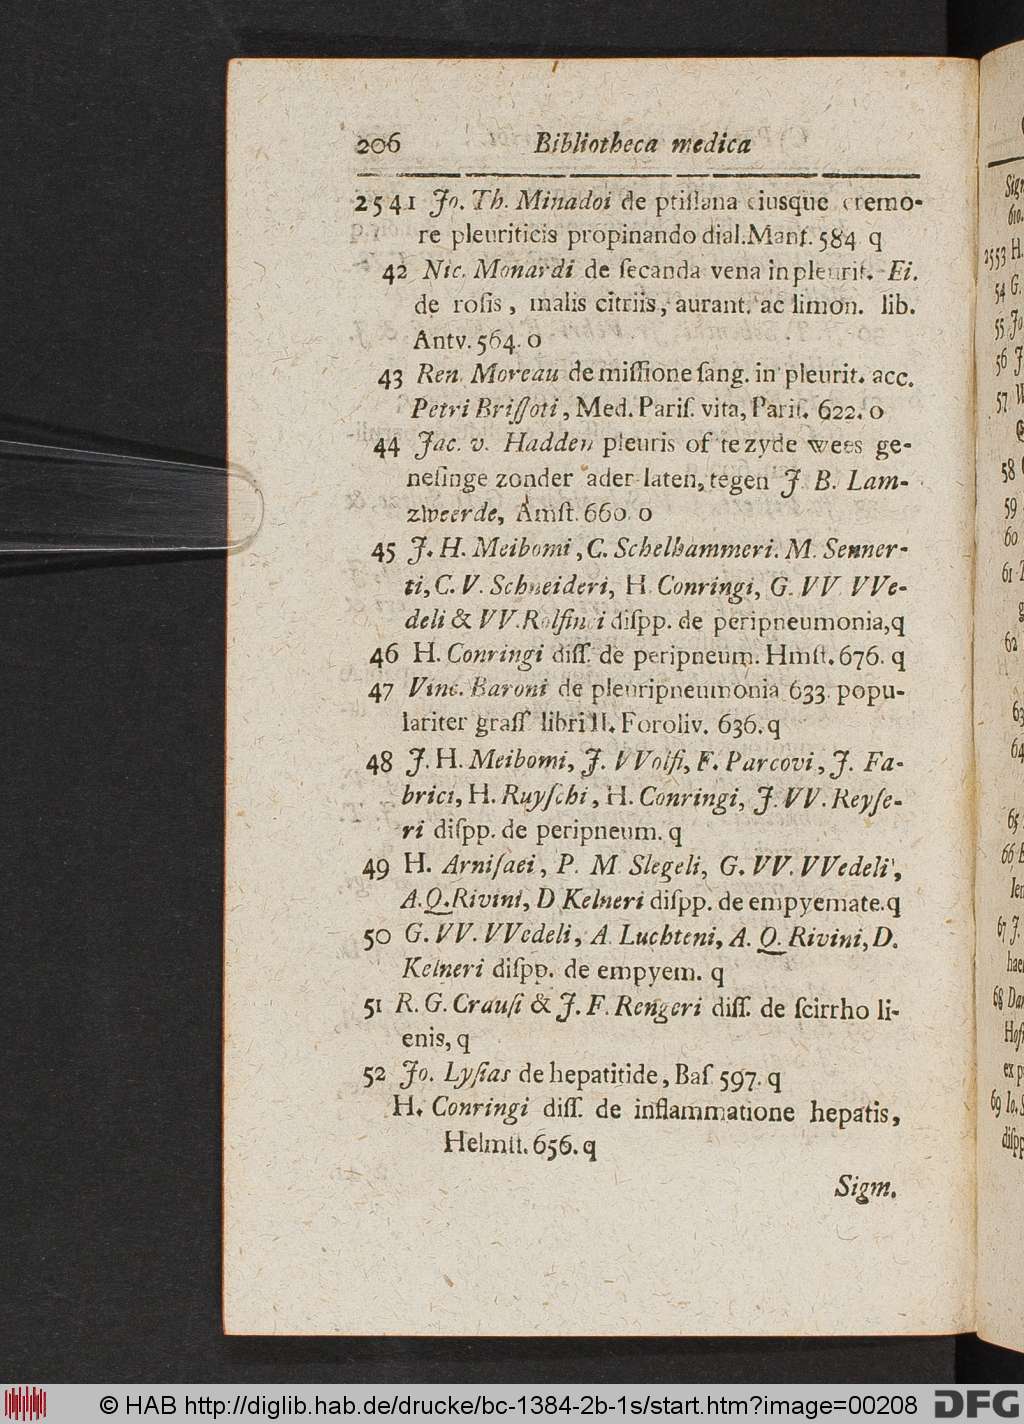 206 Bibliotheca medica
2541 Jo. Th. Minadoi de ptiſſana eiusque cremo-
re pleuriticis propinando dial. Mant. 584 q
42 Nic. Monardi de ſecanda vena in pleurit. Ei.
de roſis, malis citriis, aurant. ac limon. lib.
Antv. 564. o
43 Ren. Moreau de miſſione ſang. in pleurit. acc.
Petri Briſſoti, Med. Pariſ. vita, Pariſ. 622. o
44 Jac. v. Hadden pleuris of te zyde wees ge-
neſinge zonder ader laten, tegen J. B. Lam-
zweerde, Amſt. 660. o
45 J. H. Meibomi, C. Schelhammeri. M. Senner-
ti, C. V. Schneideri, H. Conringi, G. VV. VVe-
deli & VV. Rolfinci diſpp. de peripneumonia, q
46 H. Conringi diſſ. de peripneum. Hmſt. 676. q
47 Vinc. Baroni de pleuripneumonia 633. popu-
lariter graſſ. libri II. Foroliv. 636. q
48 J. H. Meibomi, J. VVolfi, F. Parcovi, J. Fa-
brici, H. Ruyſchi, H. Conringi, J. VV. Reyſe-
ri diſpp. de peripneum. q
49 H. Arniſaei, P. M. Slegeli, G. VV. VVedeli,
A. Q. Rivini, D. Kelneri diſpp. de empyemate. q
50 G. VV. VVedeli, A. Luchteni, A. Q. Rivini, D.
Kelneri diſpp. de empyem. q
51 R. G. Crauſi & J. F. Rengeri diſſ. de ſcirrho li-
enis, q
52 Jo. Lyſias de hepatitide, Baſ. 597. q
H. Conringi diſſ. de inflammatione hepatis,
Helmſt. 656. q
Sigm.
2553 H.
54 G.
55 Jo
56 J
57
58
59
60
61
62
63
64
65
66
67 J.
68 Dan
69 Io. S
diſpp
© HAB http://diglib.hab.de/drucke/bc-1384-2b-1s/start.htm?image=00208 DFG